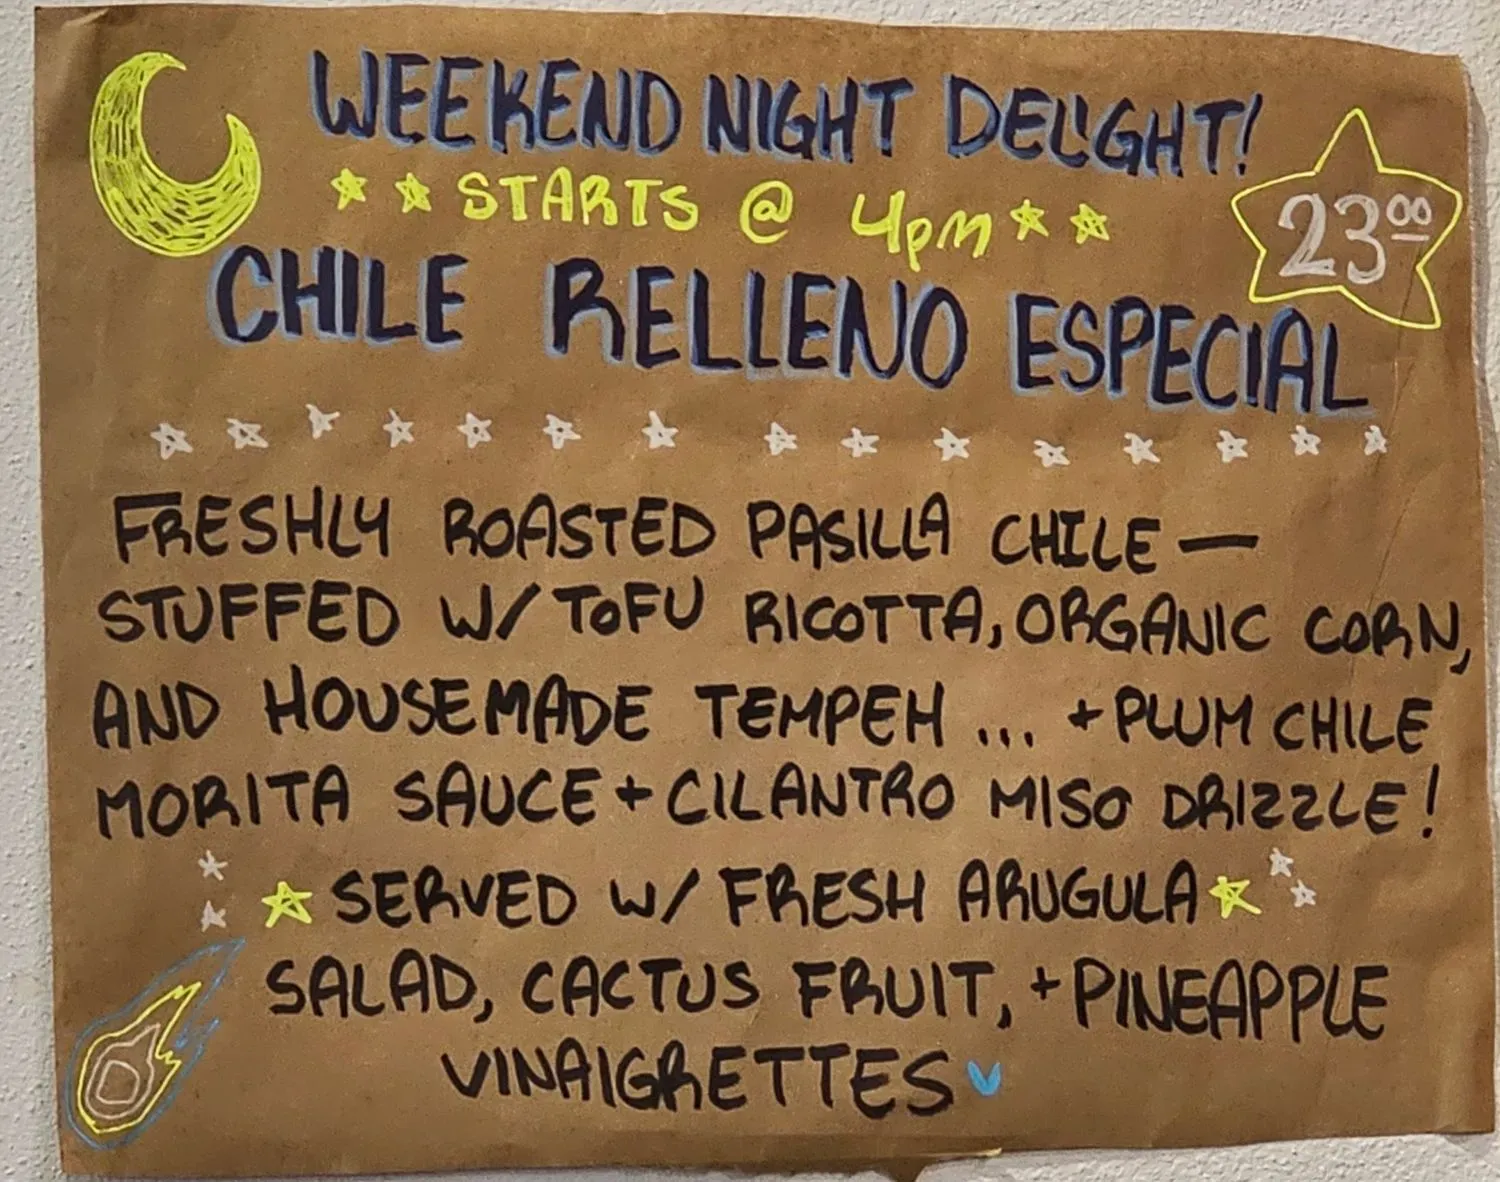 WEEKEND NIGHT DELIGHT!
STARTS @ 4pm
23⁰⁰
CHILE RELLENO ESPECIAL
FRESHLY ROASTED PASILLA CHILE —
STUFFED W/ TOFU RICOTTA, ORGANIC CORN,
AND HOUSEMADE TEMPEH ... + PLUM CHILE
MORITA SAUCE + CILANTRO MISO DRIZZLE!
SERVED W/ FRESH ARUGULA
SALAD, CACTUS FRUIT, + PINEAPPLE
VINAIGRETTES